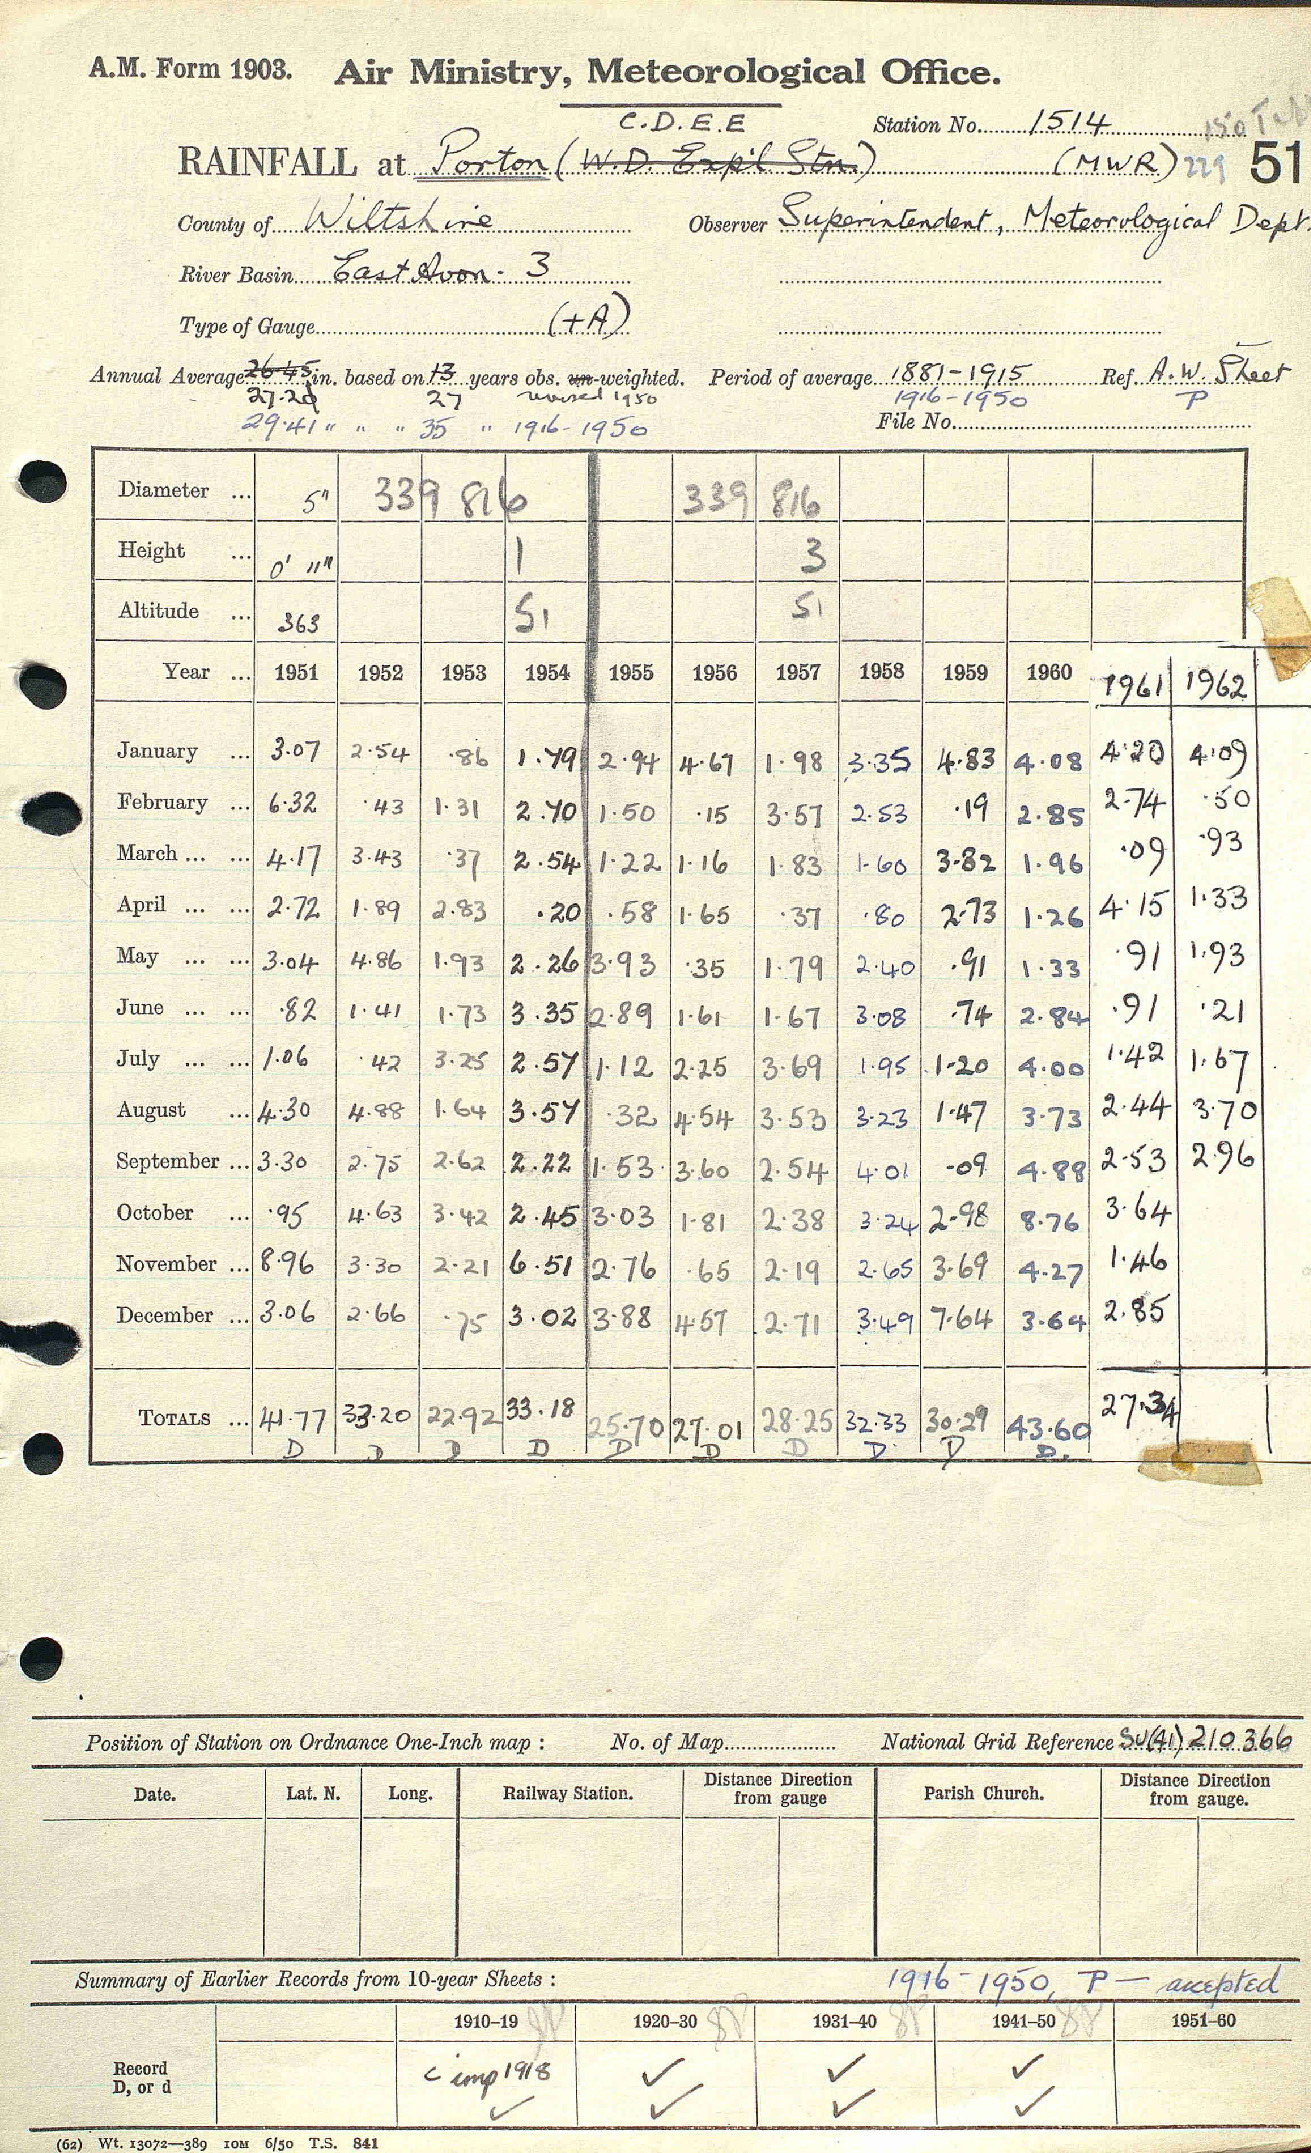 A.M. Form 1903. Air Ministry, Meteorological Office.
C.D.E.E Station No. 1514
RAINFALL at Porton (W.D. Expl Stn.) (MWR) 229 51
County of Wiltshire Observer Superintendent, Meteorological Dept.
River Basin East Avon - 3
Type of Gauge (+A)
Annual Average 26.45 in. based on 13 years obs. un-weighted. Period of average 1881-1915 Ref. A.W. Sheet
27.20 27 revised 1950 1916-1950 P
29.41 " " " 35 " 1916-1950 File No.
Diameter ... 5" 339 816 339 816
Height ... 0' 11" 1 3
Altitude ... 363 51 51
Year ... 1951 1952 1953 1954 1955 1956 1957 1958 1959 1960 1961 1962
January ... 3.07 2.54 .86 1.79 2.94 4.67 1.98 3.35 4.83 4.08 4.20 4.09
February ... 6.32 .43 1.31 2.70 1.50 .15 3.57 2.53 .19 2.85 2.74 .50
March ... ... 4.17 3.43 .37 2.54 1.22 1.16 1.83 1.60 3.82 1.96 .09 .93
April ... ... 2.72 1.89 2.83 .20 .58 1.65 .37 .80 2.73 1.26 4.15 1.33
May ... ... 3.04 4.86 1.93 2.26 3.93 .35 1.79 2.40 .91 1.33 .91 1.93
June ... ... .82 1.41 1.73 3.35 2.89 1.61 1.67 3.08 .74 2.84 .91 .21
July ... ... 1.06 .42 3.25 2.57 1.12 2.25 3.69 1.95 1.20 4.00 1.42 1.67
August ... 4.30 4.88 1.64 3.57 .32 4.54 3.53 3.23 1.47 3.73 2.44 3.70
September ... 3.30 2.75 2.62 2.22 1.53 3.60 2.54 4.01 .09 4.88 2.53 2.96
October ... .95 4.63 3.42 2.45 3.03 1.81 2.38 3.24 2.98 8.76 3.64
November ... 8.96 3.30 2.21 6.51 2.76 .65 2.19 2.65 3.69 4.27 1.46
December ... 3.06 2.66 .75 3.02 3.88 4.57 2.71 3.49 7.64 3.64 2.85
TOTALS ... 41.77 33.20 22.92 33.18 25.70 27.01 28.25 32.33 30.29 43.60 27.34
D D D D D D D D D D.
Position of Station on Ordnance One-Inch map : No. of Map National Grid Reference SU(41) 210 366
Date. Lat. N. Long. Railway Station. Distance Direction from gauge Parish Church. Distance Direction from gauge.
Summary of Earlier Records from 10-year Sheets : 1916-1950, P — accepted
1910-19 1920-30 1931-40 1941-50 1951-60
Record D, or d c imp 1918 ✓ ✓ ✓
✓ ✓ ✓ ✓
(62) Wt. 13072—389 10M 6/50 T.S. 841